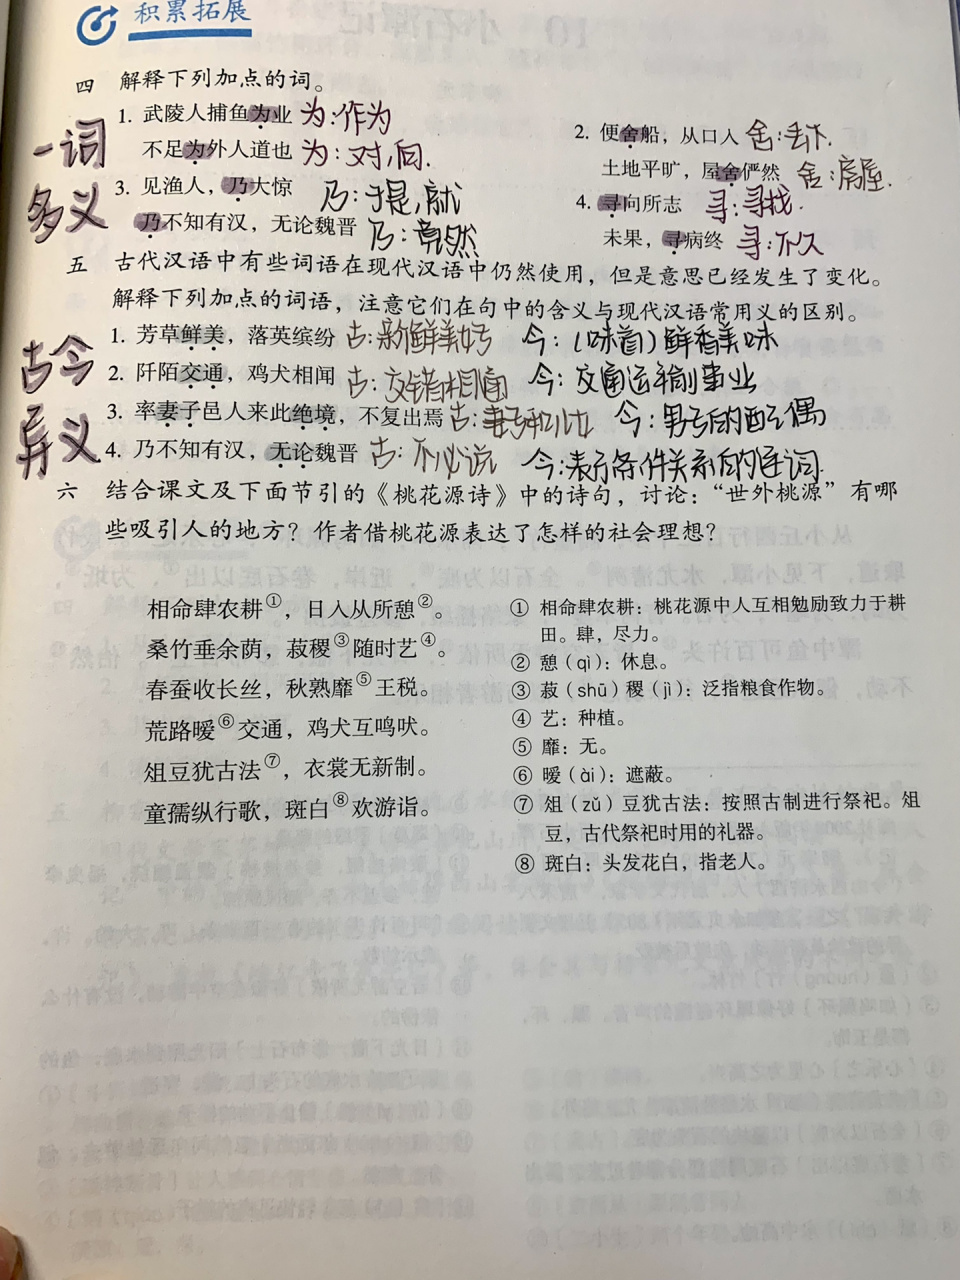 积累拓展
四 解释下列加点的词。
1. 武陵人捕鱼为业 为:作为
不足为外人道也 为:对,向.
2. 便舍船，从口入 舍:丢下.
土地平旷，屋舍俨然 舍:房屋.
一词
多义
3. 见渔人，乃大惊 乃:于是,就
乃不知有汉，无论魏晋 乃:竟然
4. 寻向所志 寻:寻找.
未果，寻病终 寻:不久
五 古代汉语中有些词语在现代汉语中仍然使用，但是意思已经发生了变化。
解释下列加点的词语，注意它们在句中的含义与现代汉语常用义的区别。
古今
异义
1. 芳草鲜美，落英缤纷 古:新鲜美好 今:(味道)鲜香美味
2. 阡陌交通，鸡犬相闻 古:交错相通 今:交通运输事业
3. 率妻子邑人来此绝境，不复出焉 古:妻子和儿女 今:男子的配偶
4. 乃不知有汉，无论魏晋 古:不必说 今:表示条件关系的连词.
六 结合课文及下面节引的《桃花源诗》中的诗句，讨论：“世外桃源”有哪
些吸引人的地方？作者借桃花源表达了怎样的社会理想？
相命肆农耕①，日入从所憩②。
桑竹垂余荫，菽稷③随时艺④。
春蚕收长丝，秋熟靡⑤王税。
荒路暧⑥交通，鸡犬互鸣吠。
俎豆犹古法⑦，衣裳无新制。
童孺纵行歌，斑白⑧欢游诣。
① 相命肆农耕：桃花源中人互相勉励致力于耕
田。肆，尽力。
② 憩（qì）：休息。
③ 菽（shū）稷（jì）：泛指粮食作物。
④ 艺：种植。
⑤ 靡：无。
⑥ 暧（ài）：遮蔽。
⑦ 俎（zǔ）豆犹古法：按照古制进行祭祀。俎
豆，古代祭祀时用的礼器。
⑧ 斑白：头发花白，指老人。